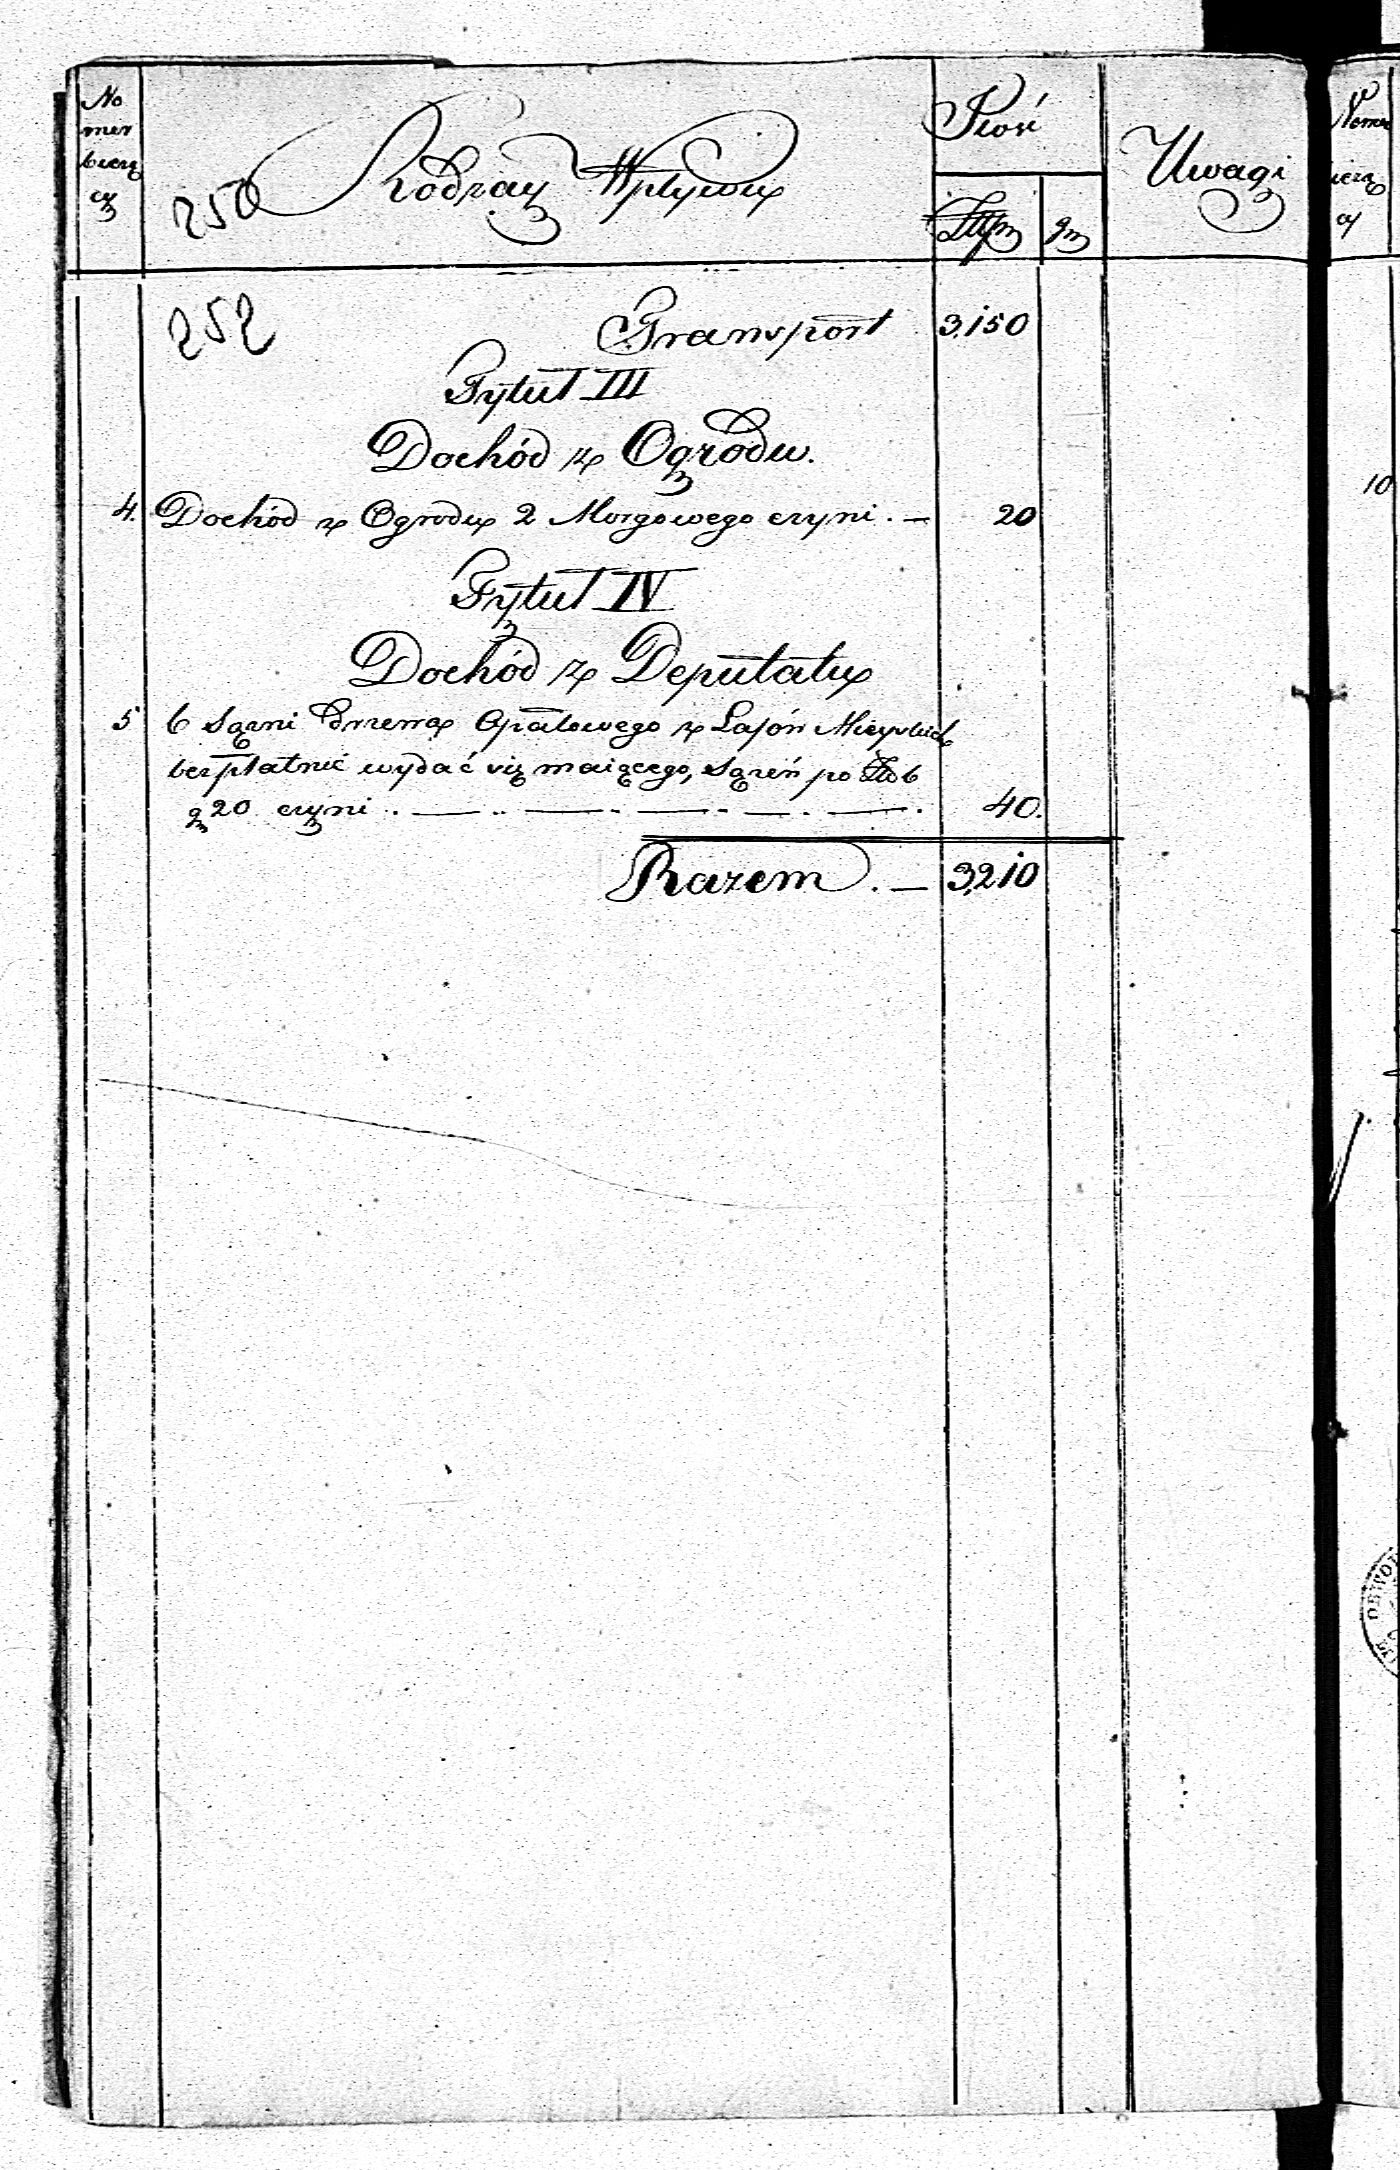 No
mer
bieżą
cy
250 Rodzay Wpływu
Ilość
Złtp gr
Uwagi
Nomer
bieżą
cy
252 Transport 3,150
Tytuł III
Dochód z Ogrodu.
10
4. Dochód z Ogrodu 2 Morgowego czyni . — 20
Tytuł IV
Dochód z Deputatu
5 6 Sążni drzewa Opałowego z Lasów Mieyskich
bezpłatnie wydać się maiącego, Sążeń po Zł 6
gr 20 czyni . — 40.
Razem . — 3,210
DEWO